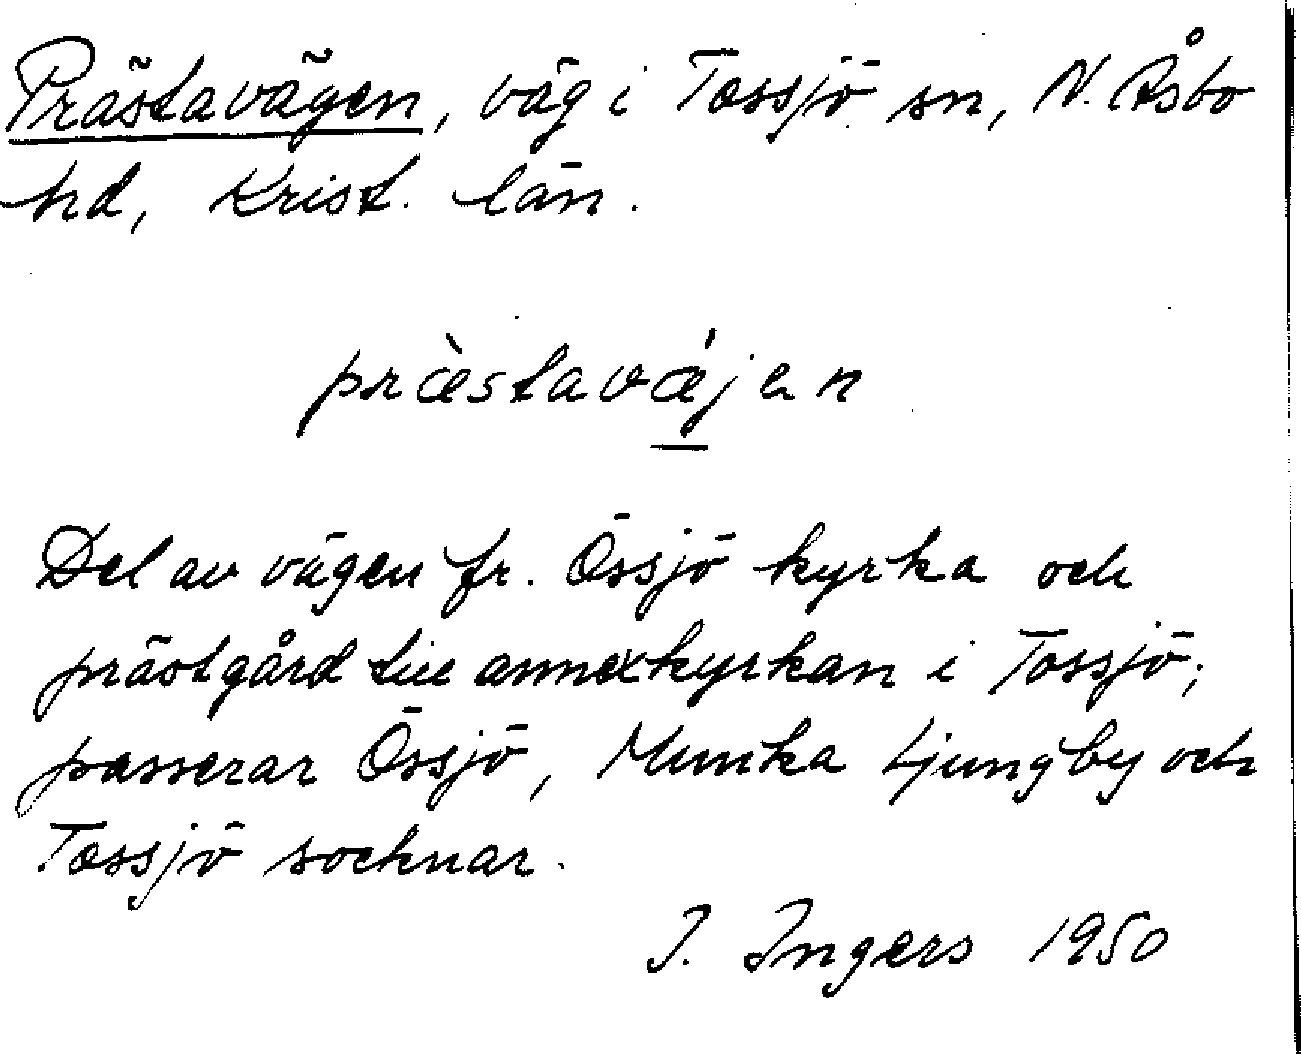 Prästavägen, väg i Tossjö sn, N. Åsbo
hd, Krist. län.
præ̀stavǽjen
Del av vägen fr. Össjö kyrka och
prästgård till annexkyrkan i Tossjö;
passerar Össjö, Munka Ljungby och
Tossjö socknar.
I. Ingers 1950